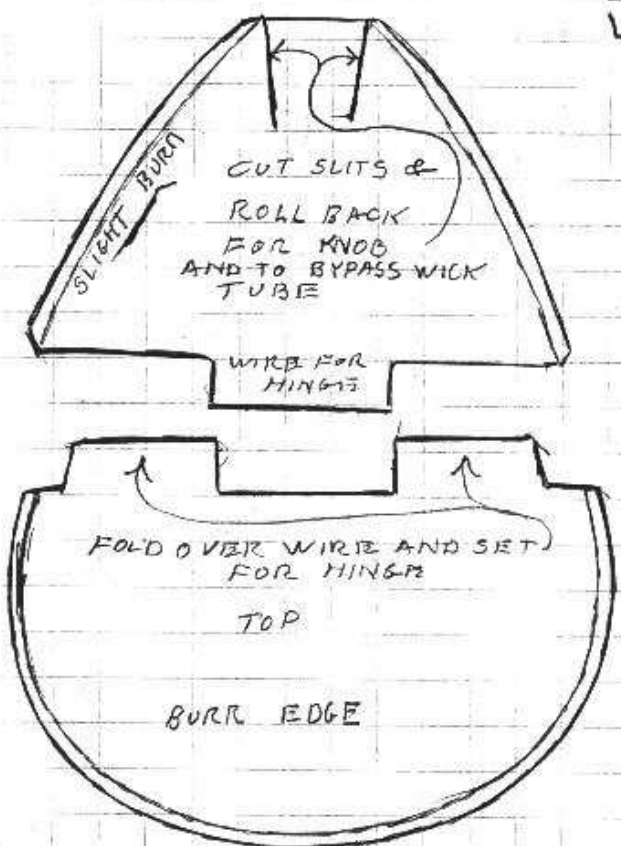 SLIGHT BURR
CUT SLITS &
ROLL BACK
FOR KNOB
AND TO BYPASS WICK
TUBE
WIRE FOR
HINGE
FOLD OVER WIRE AND SET
FOR HINGE
TOP
BURR EDGE